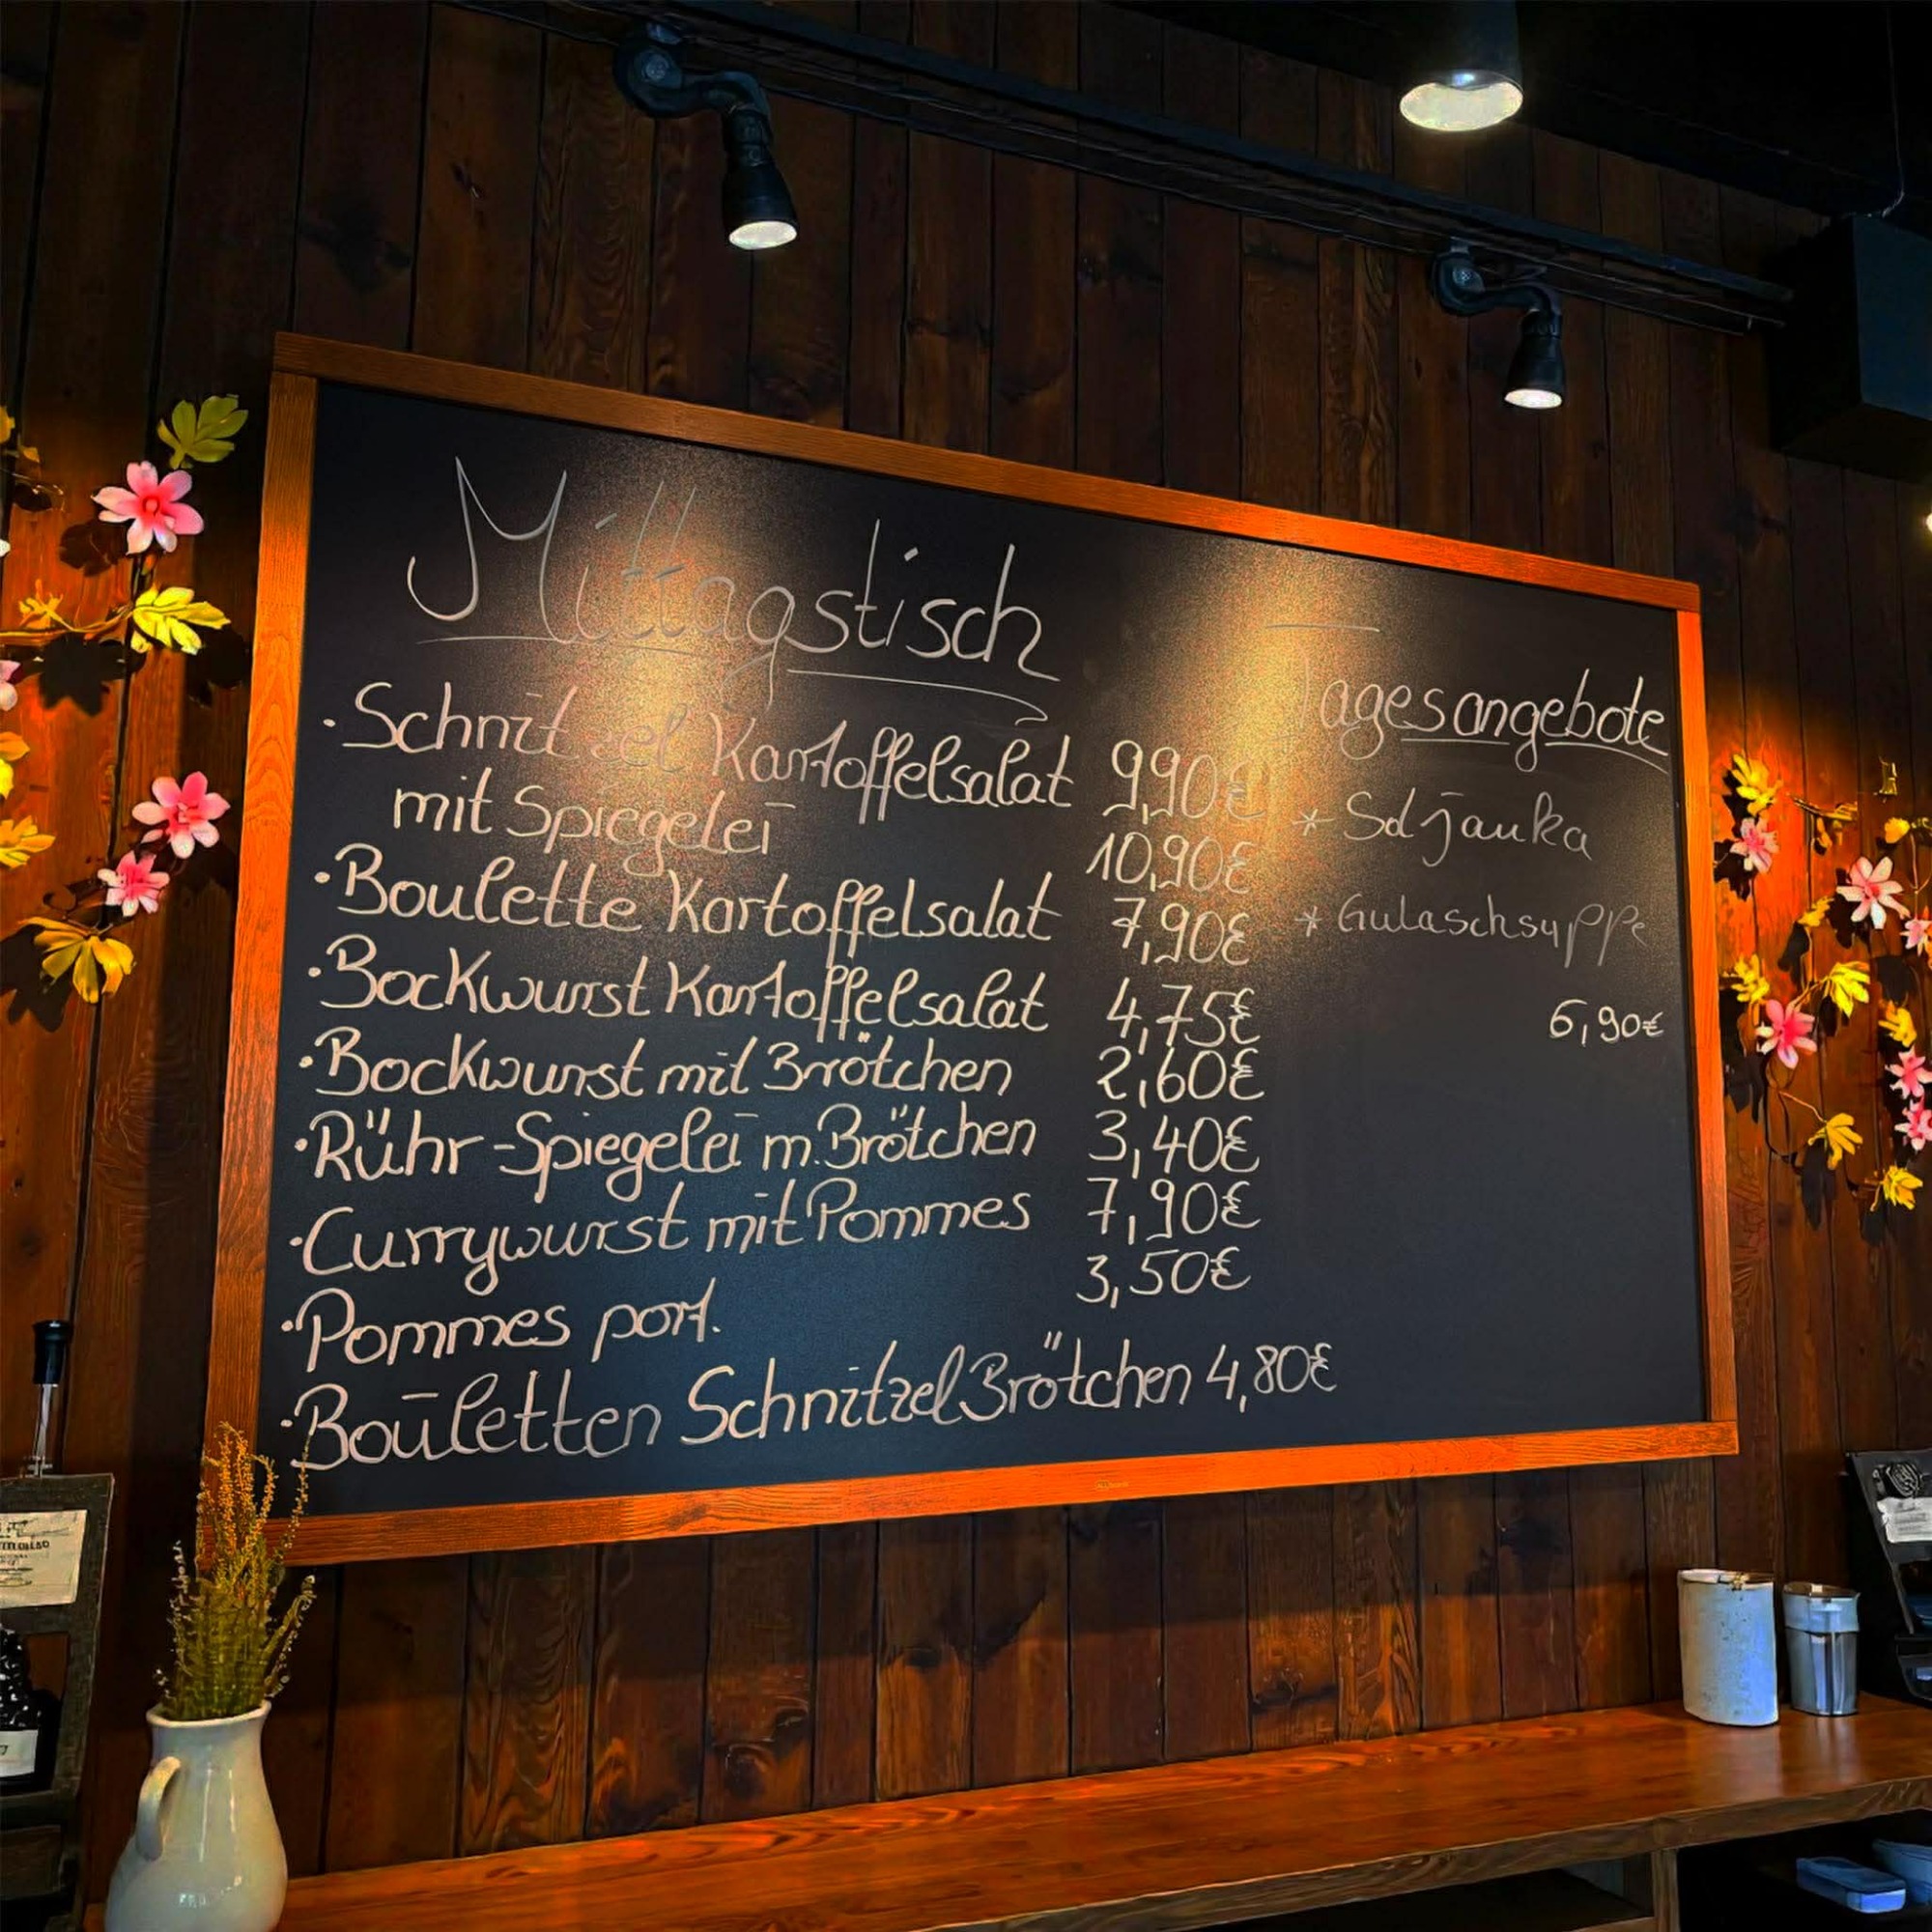 Mittagstisch
· Schnitzel Kartoffelsalat 9,90€
mit Spiegelei 10,90€
· Boulette Kartoffelsalat 7,90€
· Bockwurst Kartoffelsalat 4,75€
· Bockwurst mit Brötchen 2,60€
· Rühr-Spiegelei m. Brötchen 3,40€
· Currywurst mit Pommes 7,90€
· Pommes port. 3,50€
· Bouletten Schnitzel Brötchen 4,80€
Tagesangebote
* Soljanka
* Gulaschsuppe
6,90€